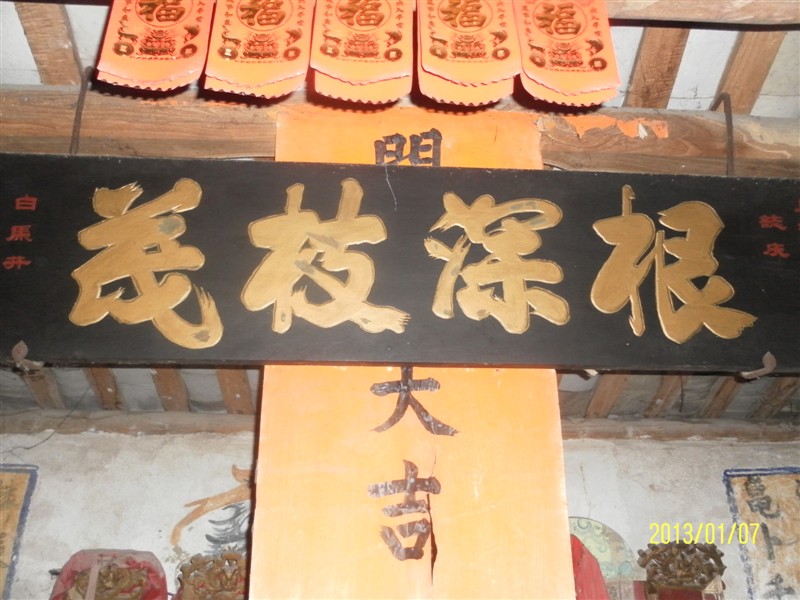 福 福 福 福 福
根深枝茂
白馬井
大吉
2013/01/07